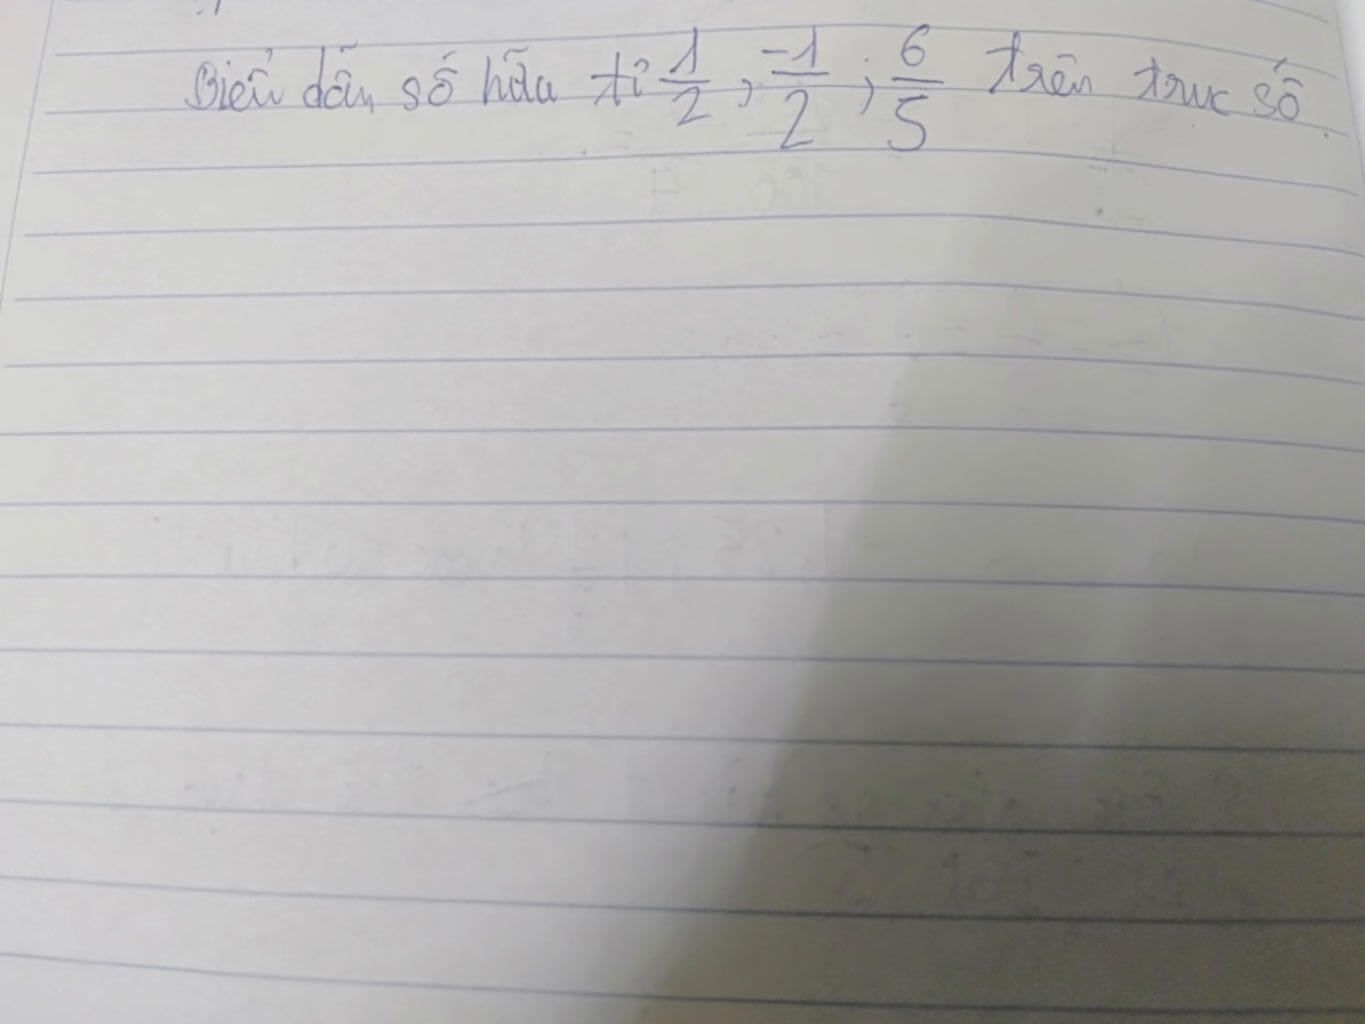 Biểu dẫn số hữu tỉ 1/2, -1/2; 6/5 trên trục số